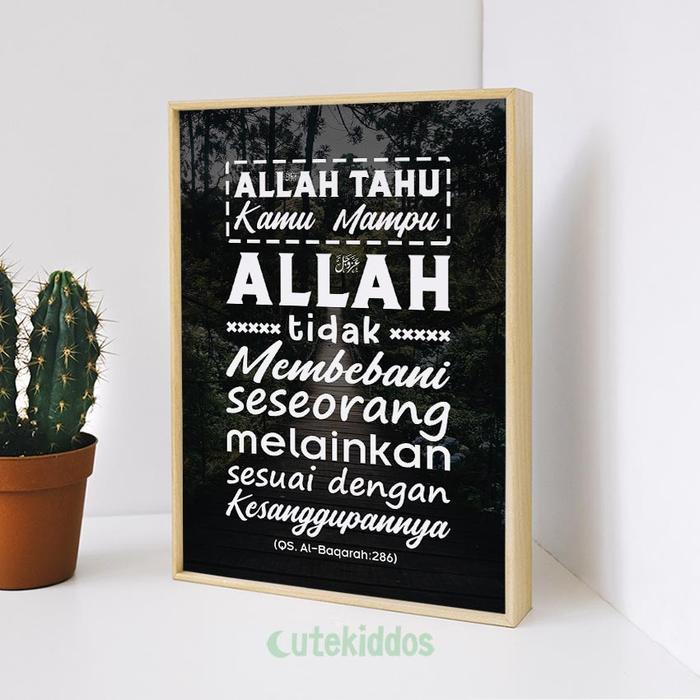 ALLAH TAHU
Kamu Mampu
ALLAH عزوجل
xxxxx tidak xxxxx
Membebani
seseorang
melainkan
sesuai dengan
Kesanggupannya
(QS. Al-Baqarah:286)
Cutekiddos